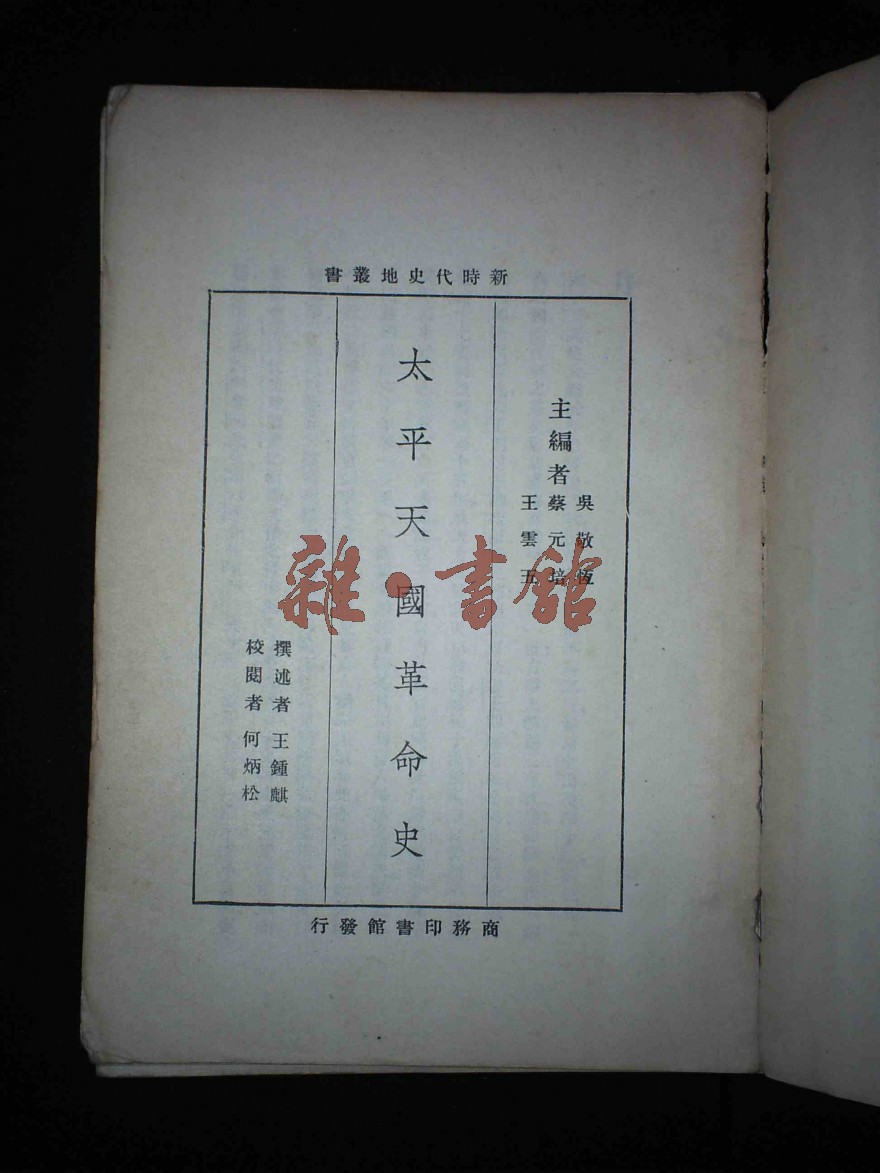 新時代史地叢書
主編者
吳敬恆
蔡元培
王雲五
太平天國革命史
撰述者 王鍾麒
校閱者 何炳松
商務印書館發行
雜·書館